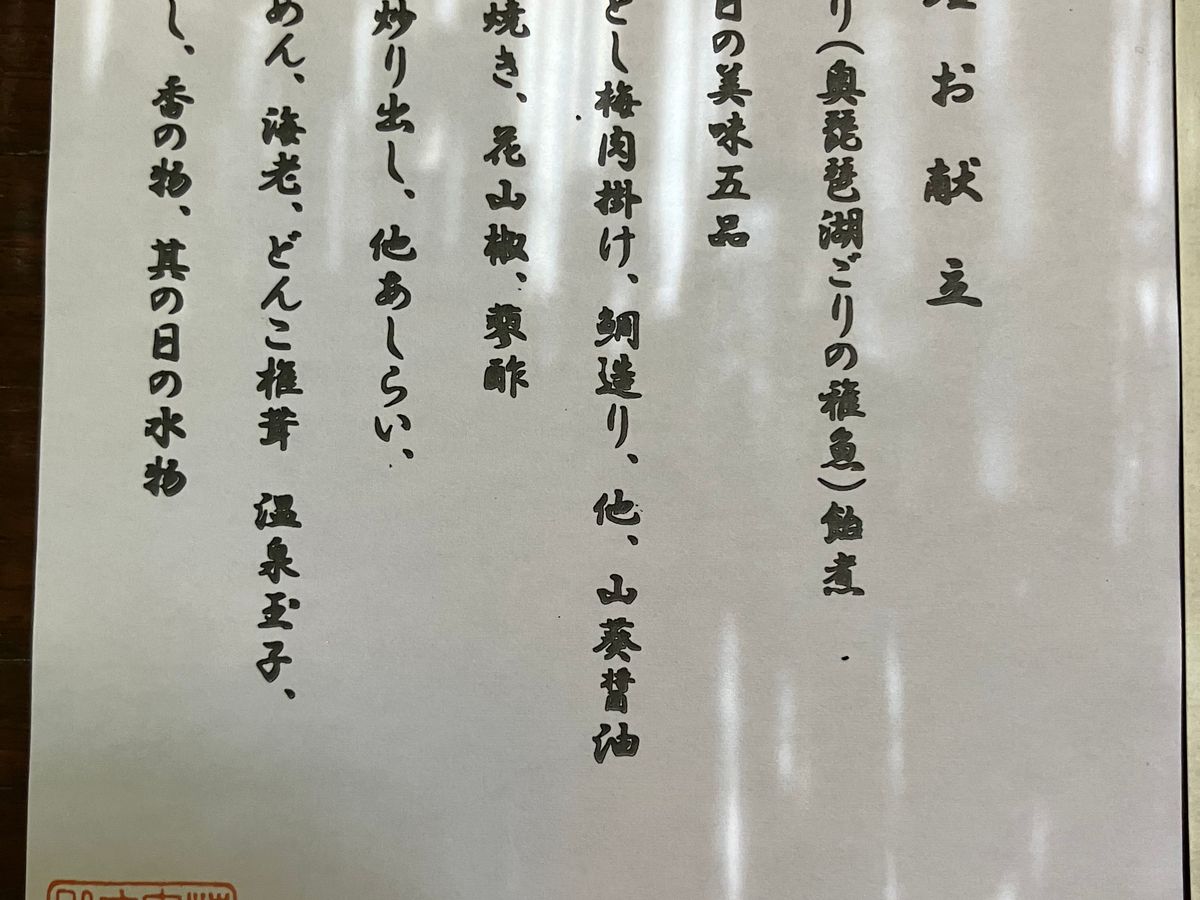 お献立
り(奥琵琶湖ごりの稚魚)飴煮
日の美味五品
とし梅肉掛け、鯛造り、他、山葵醤油
焼き、花山椒、蓼酢
炒り出し、他あしらい、
めん、海老、どんこ椎茸　温泉玉子、
し、香の物、其の日の水物